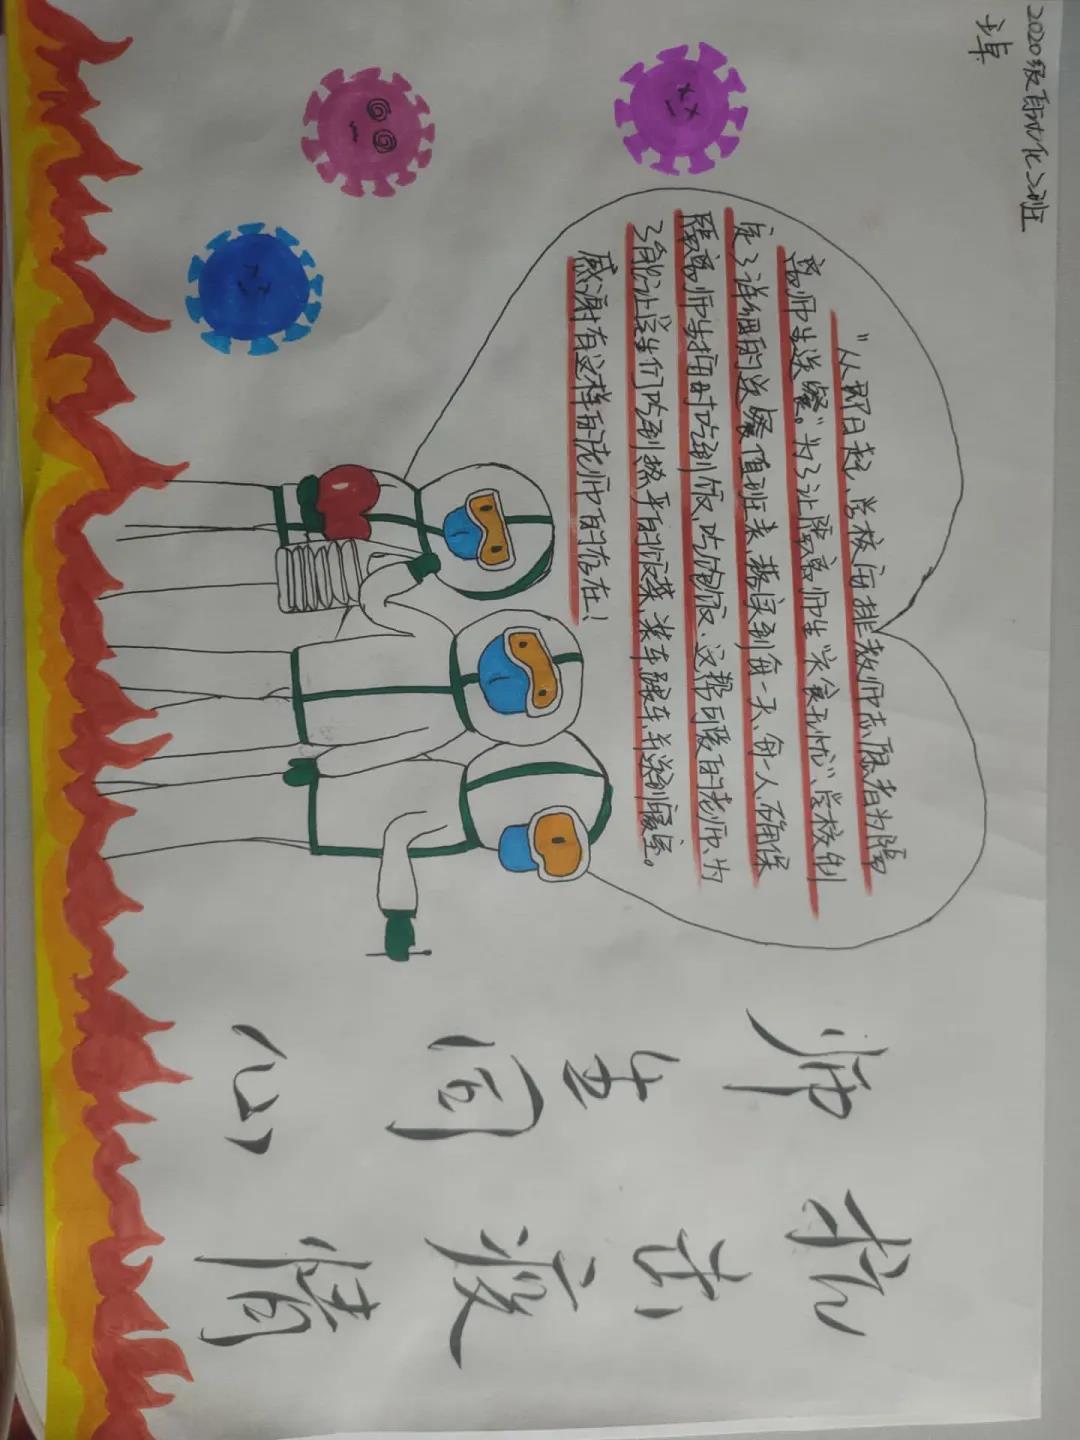 2020级自动化2班
王卓
“从即日起、学校安排教师志愿者为隔
离师生送餐。”为了让隔离师生“衣食无忧”、学校制
定了详细的送餐值班表、落实到每一天、每一人、确保
隔离师生按时吃到饭、吃饱饭、这帮可爱的老师、为
了能让学生们吃到热乎的饭菜、装车、跟车、并送到寝室。
感谢有这样的老师的存在！
师生同心
抗击疫情